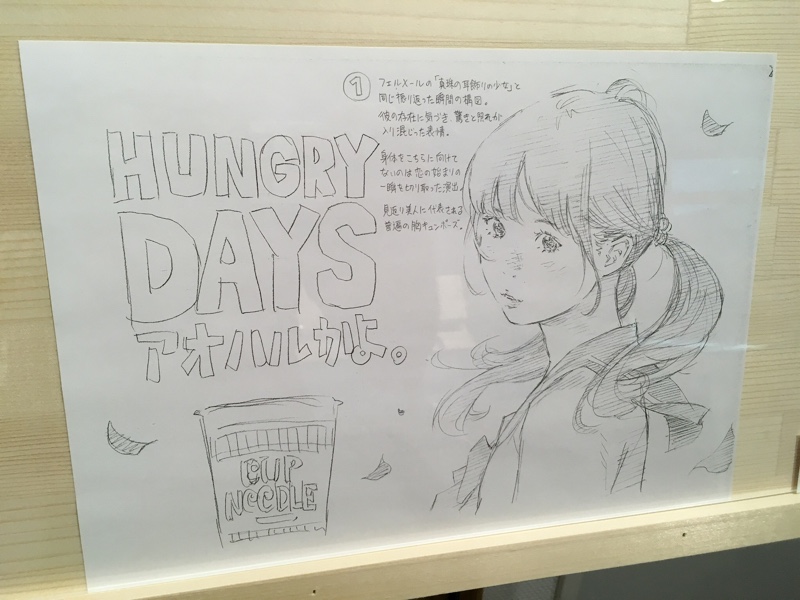 ①
フェルメールの「真珠の耳飾りの少女」と
同じ振り返った瞬間の構図。
彼の存在に気づき、驚きと照れが
入り混じった表情。
身体をこちらに向けて
ないのは恋の始まりの
一瞬を切り取った演出。
見返り美人に代表される
普遍の胸キュンポーズ。
HUNGRY
DAYS
アオハルかよ。
CUP
NOODLE